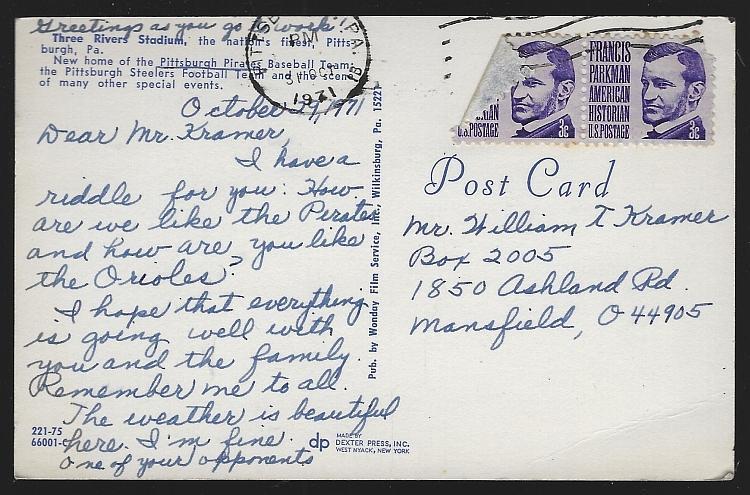 Greetings as you go to work
Three Rivers Stadium, the nation's finest, Pitts-
burgh, Pa.
New home of the Pittsburgh Pirates Baseball Team,
the Pittsburgh Steelers Football Team and the scene
of many other special events.
October 29, 1971
Dear Mr. Kramer,
I have a
riddle for you: How
are we like the Pirates
and how are you like
the Orioles?
I hope that everything
is going well with
you and the family.
Remember me to all.
The weather is beautiful
here. I'm fine.
One of your opponents
221-75
66001-C
dp
MADE BY
DEXTER PRESS, INC.
WEST NYACK, NEW YORK
Pub. by Wonday Film Service, Inc., Wilkinsburg, Pa. 15221
PM
1971
U.S. POSTAGE 3c
FRANCIS
PARKMAN
AMERICAN
HISTORIAN
U.S. POSTAGE 3c
Post Card
Mr. William T Kramer
Box 2005
1850 Ashland Rd.
Mansfield, O 44905